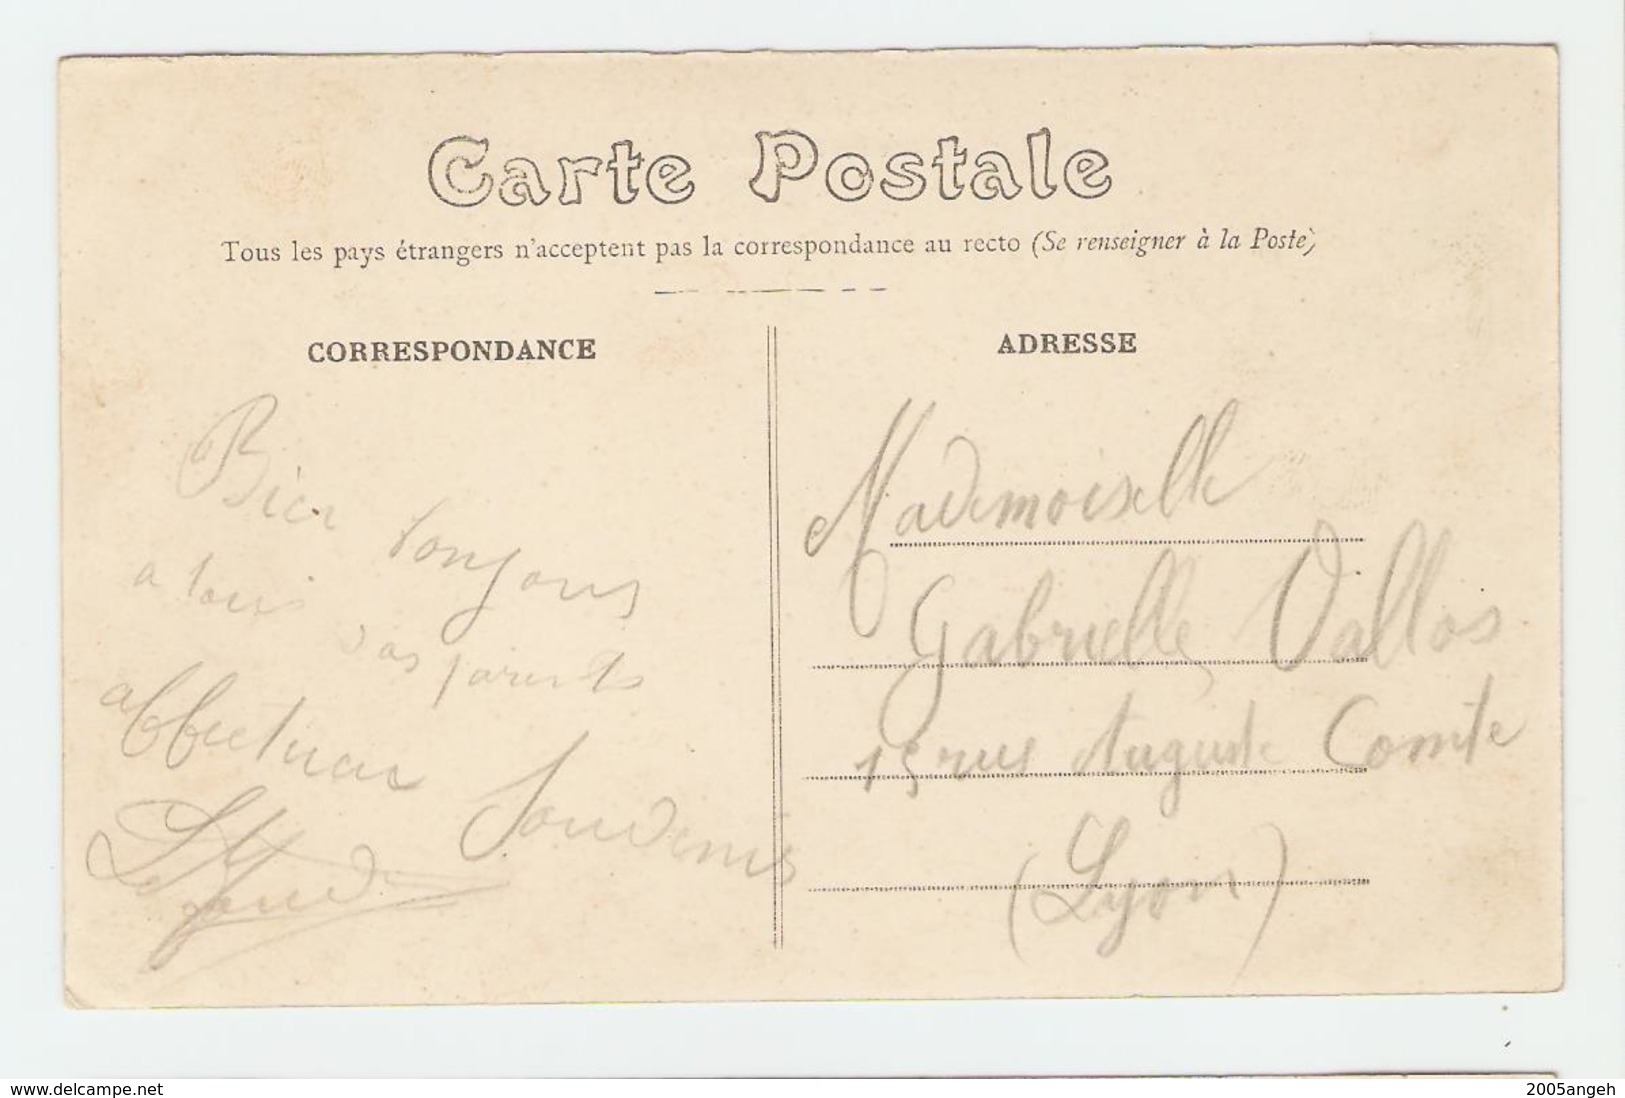 Carte Postale
Tous les pays étrangers n'acceptent pas la correspondance au recto (Se renseigner à la Poste)
CORRESPONDANCE
Bien toujours
a tous vos parents
affectueux Souvenirs
ADRESSE
Mademoiselle
Gabrielle Vallos
15 rue Auguste Comte
(Lyon)
www.delcampe.net
2005angeh